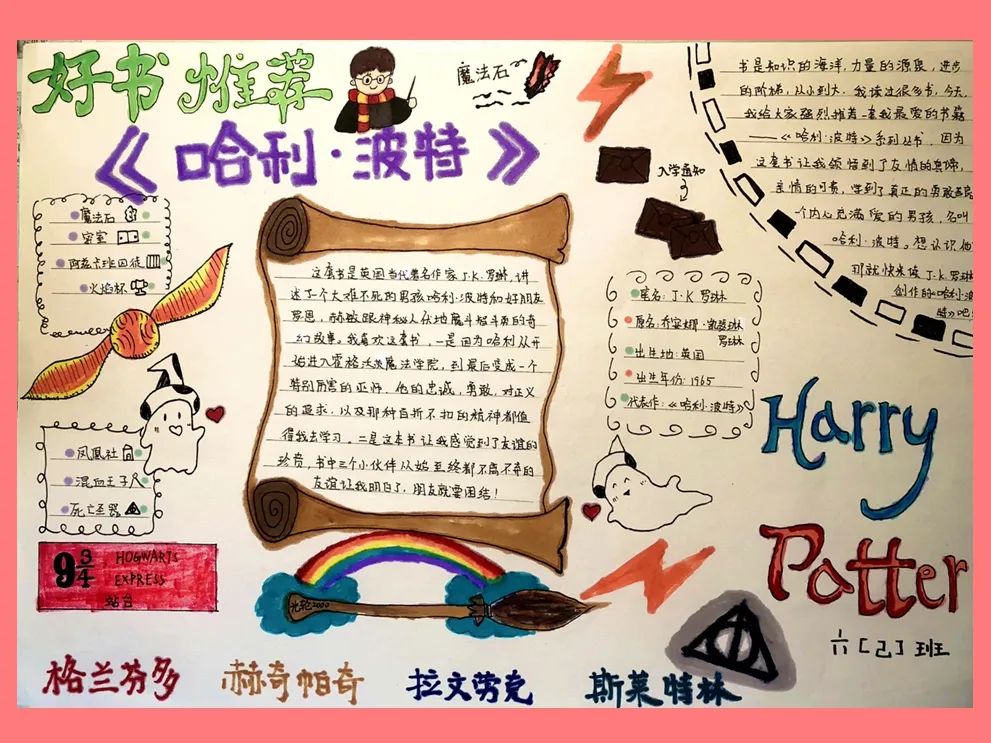 好书推荐
《哈利·波特》
魔法石
入学通知
书是知识的海洋,力量的源泉,进步
的阶梯,从小到大,我读过很多书,今天,
我给大家强烈推荐一套我最爱的书籍
——《哈利·波特》系列丛书,因为
这套书让我领悟到了友情的真谛,
亲情的可贵,学到了真正的勇敢
一个内心充满爱的男孩,名叫
哈利·波特。想认识他
那就快来做J.K.罗琳
创作的《哈利·波
特》吧
魔法石
密室
阿兹卡班囚徒
火焰杯
凤凰社
混血王子
死亡圣器
这套书是英国当代著名作家J·K·罗琳,讲
述了一个大难不死的男孩哈利·波特和好朋友
罗恩,赫敏跟神秘人伏地魔斗智斗勇的奇
幻故事。我喜欢这套书,一是因为哈利从开
始进入霍格沃茨魔法学院,到最后变成一个
特别厉害的巫师,他的忠诚,勇敢,对正义
的追求,以及那种百折不扣的精神都值
得我去学习。二是这本书让我感觉到了友谊的
珍贵,书中三个小伙伴从始至终都不离不弃的
友谊让我明白了,朋友就要团结!
笔名:J·K罗琳
原名:乔安娜·凯瑟琳
罗琳
出生地:英国
出生年份:1965
代表作:《哈利·波特》
Harry
Potter
9¾ HOGWARTS
EXPRESS
站台
光轮2000
六[2]班
格兰芬多 赫奇帕奇 拉文劳克 斯莱特林